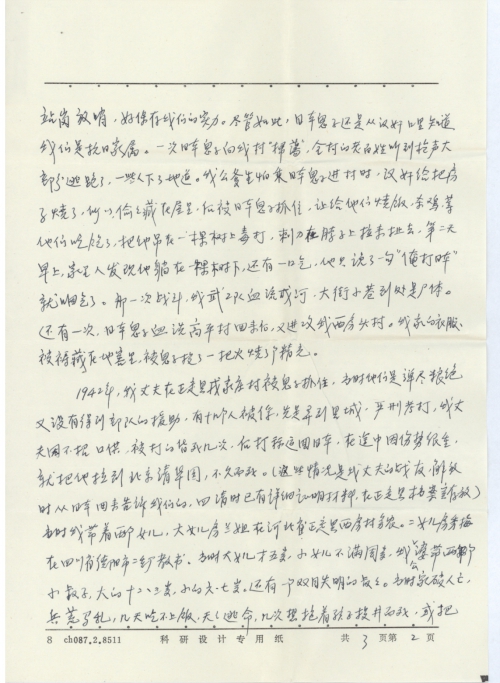 站岗放哨，好保存我们的实力。尽管如此，日军鬼子还是从汉奸口里知道
我们是抗日家属。一次日军鬼子向我村"扫荡"，全村的老百姓听到枪声大
部分逃跑了，一些人下了地道。我公爹生怕来日军鬼子进村时，汉奸给把房
子烧了，所以偷偷藏在屋里，后被日军鬼子抓住，让给他们烧饭、杀鸡，等
他们吃饱了，把他吊在一棵树上毒打，刺刀在脖子上拉来扯去。第二天
早上，家里人发现他躺在一棵树下，还有一口气，他只说了一句"俺打日本"
就咽气了。那一次战斗，我武工队血流成河，大街小巷到处是尸体。
还有一次，日军鬼子血洗高平村回来后，又进攻我西房头村。我家的衣服、
被褥藏在地里，被鬼子挖了一把火烧了精光。
1942年，我丈夫在正定里 家庄村被鬼子抓住，当时他们是弹尽粮绝
又没有得到部队的援助，有十几个人被俘，先是弄到里城，严刑拷打，我丈
夫因不招口供，被打的昏死几次，后打算运回日本，在途中因伤势很重，
就把他拉到北京清华园，不久而死。（这些情况是我丈夫的战友，解放
时从日本回去告诉我们的，四清时已有详细证明材料，在正定县档案室存放）
当时我带着两个女儿，大女儿房 姐在河北省正定县西房村务农。二女儿房秀梅
在四川省绵阳市二 教书。当时大女儿才五岁，小女儿不满周岁，我婆带两个
小叔子，大的十二、三岁，小的六、七岁。还有一个双目失明的 。当时家破人亡，
兵荒马乱，几天吃不上饭，天天逃命，几次想抱着孩子投井而死，或把
8 ch087.2.8511 科研设计专用纸 共3页第2页